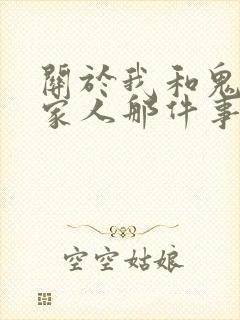 關於我和鬼
家人那件事
空空姑娘